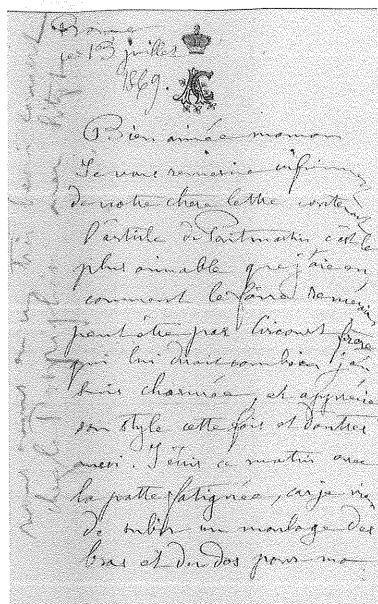 Rome
13 juillet
1869.
Bien aimée maman
Je vous remercie infiniment
de votre chère lettre contenant
l'article de Pontmartin c'est le
plus aimable que j'aie eu
comment le faire remercier
peut être par Circourt frère
qui lui dirait combien j'en
suis charmée, et apprécie
son style cette fois et d'autres
aussi. J'écris ce matin avec
la patte fatiguée, car je viens
de subir un moulage des
bras et du dos pour ma
nous avons eu un très
chez le